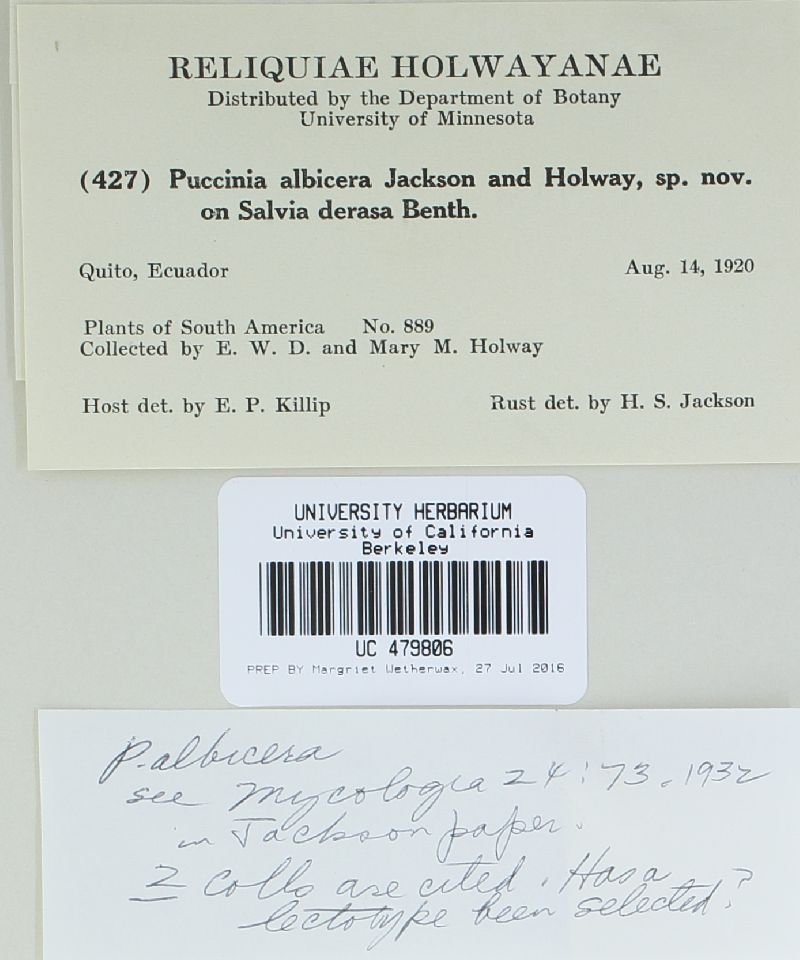 RELIQUIAE HOLWAYANAE
Distributed by the Department of Botany
University of Minnesota
(427) Puccinia albicera Jackson and Holway, sp. nov.
on Salvia derasa Benth.
Quito, Ecuador Aug. 14, 1920
Plants of South America No. 889
Collected by E. W. D. and Mary M. Holway
Host det. by E. P. Killip Rust det. by H. S. Jackson
UNIVERSITY HERBARIUM
University of California
Berkeley
UC 479806
PREP BY Margriet Wetherwax, 27 Jul 2016
P. albicera
see Mycologia 24:73. 1932
in Jackson paper.
2 colls are cited. Has a
lectotype been selected?